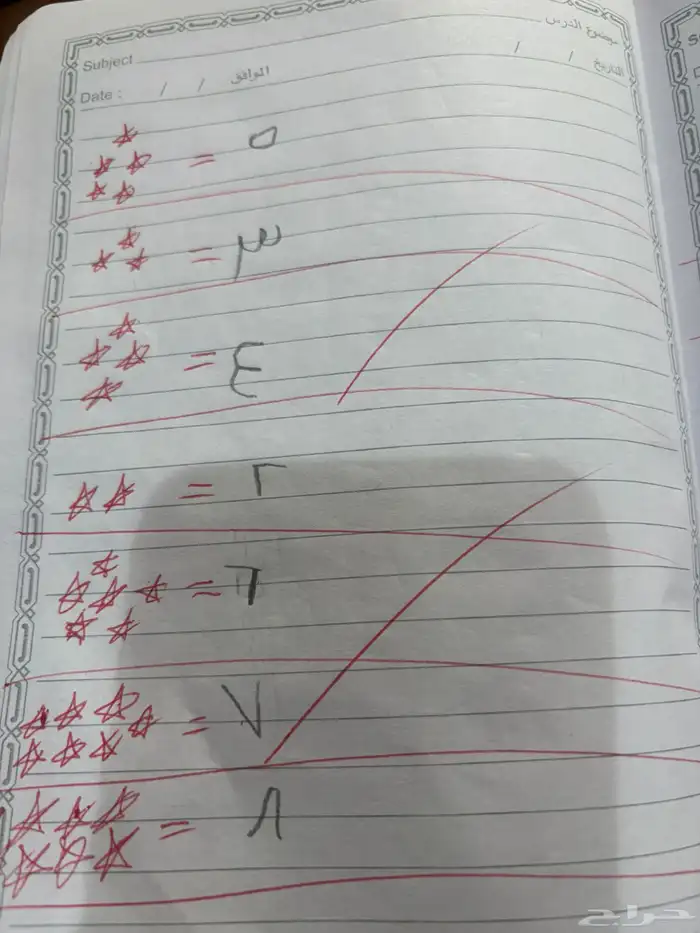 موضوع الدرس
Subject
التاريخ / / الموافق / / Date :
= ٥
= ٣
= ٤
= ٢
= ٦
= ٧
= ٨
حراج